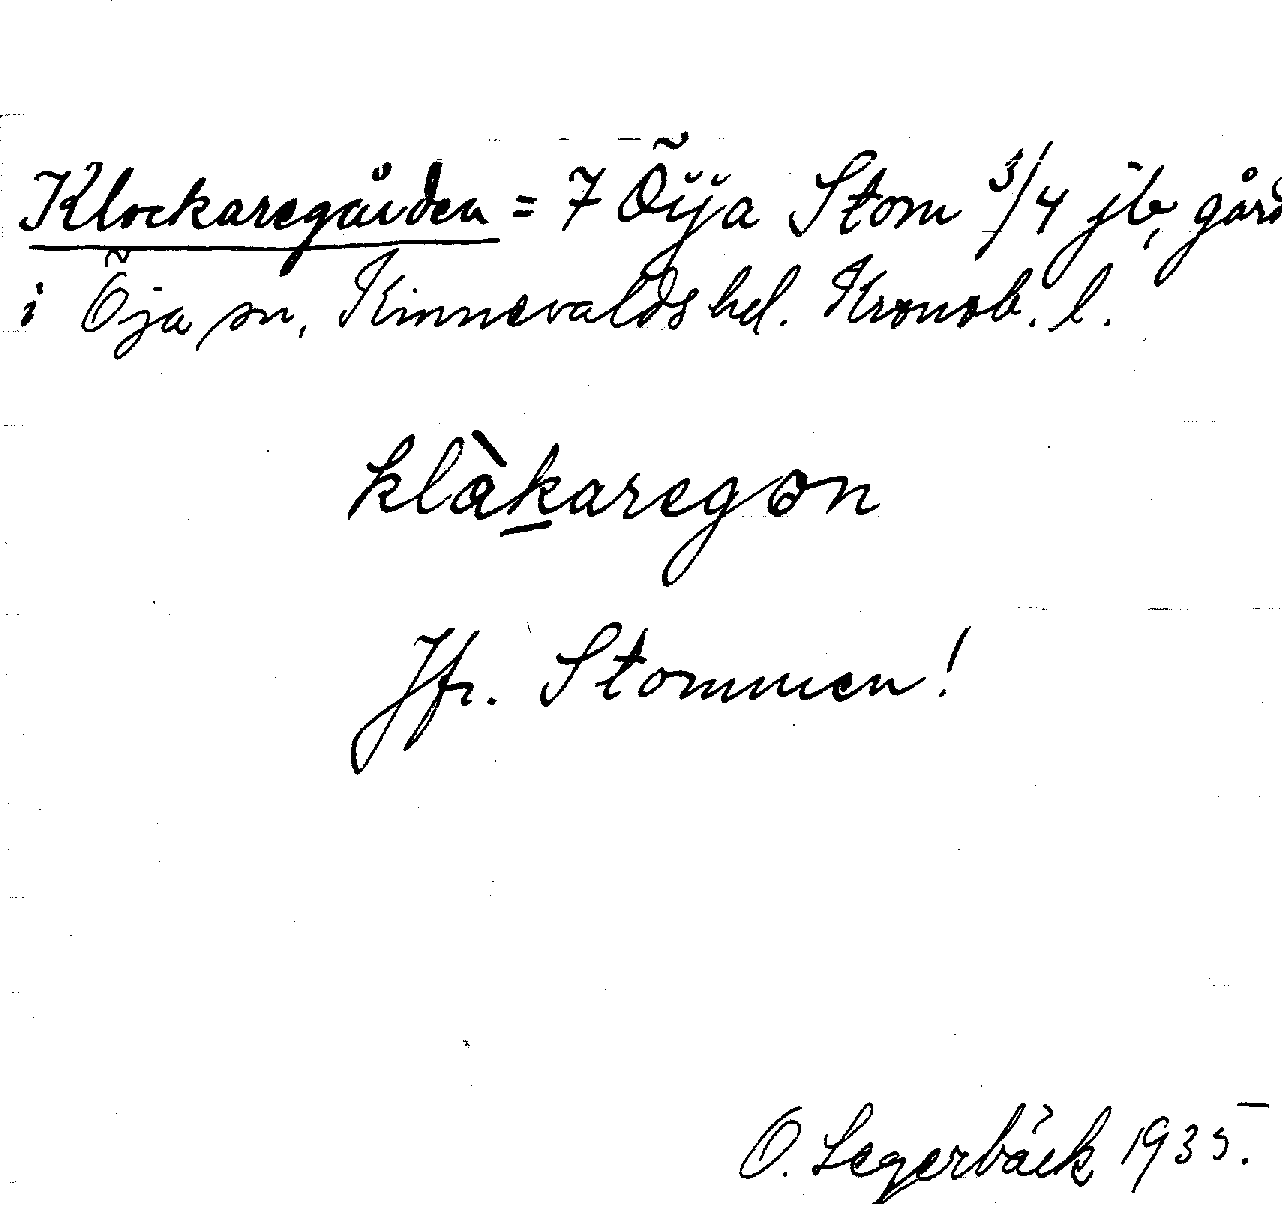 Klockaregården = 7 Öija Stom 3/4 jb, gård
i Öja sn, Kinnevalds hd. Kronob. l.
klàkaregon
Jfr. Stommen!
O. Legerbäck 1935.